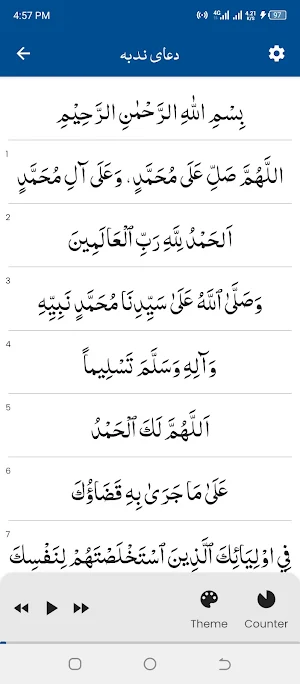 4:57 PM 4G 4.21 K/s 97
دعای ندبه
بِسْمِ اللهِ الرَّحْمٰنِ الرَّحِيْمِ
1
اللَّهُمَّ صَلِّ عَلَى مُحَمَّدٍ، وَعَلَى آلِ مُحَمَّدٍ
2
اَلحَمْدُ لِلَّهِ رَبِّ ٱلْعَالَمِينَ
3
وَصَلَّىٰ ٱللَّهُ عَلَىٰ سَيِّدِنَا مُحَمَّدٍ نَبِيِّهِ
4
وَآلِهِ وَسَلَّمَ تَسْلِيماً
5
اَللَّهُمَّ لَكَ ٱلْحَمْدُ
6
عَلَىٰ مَا جَرَىٰ بِهِ قَضَاؤُكَ
7
فِي اوْلِيَائِكَ ٱلَّذِينَ ٱسْتَخْلَصْتَهُمْ لِنَفْسِكَ
Theme Counter